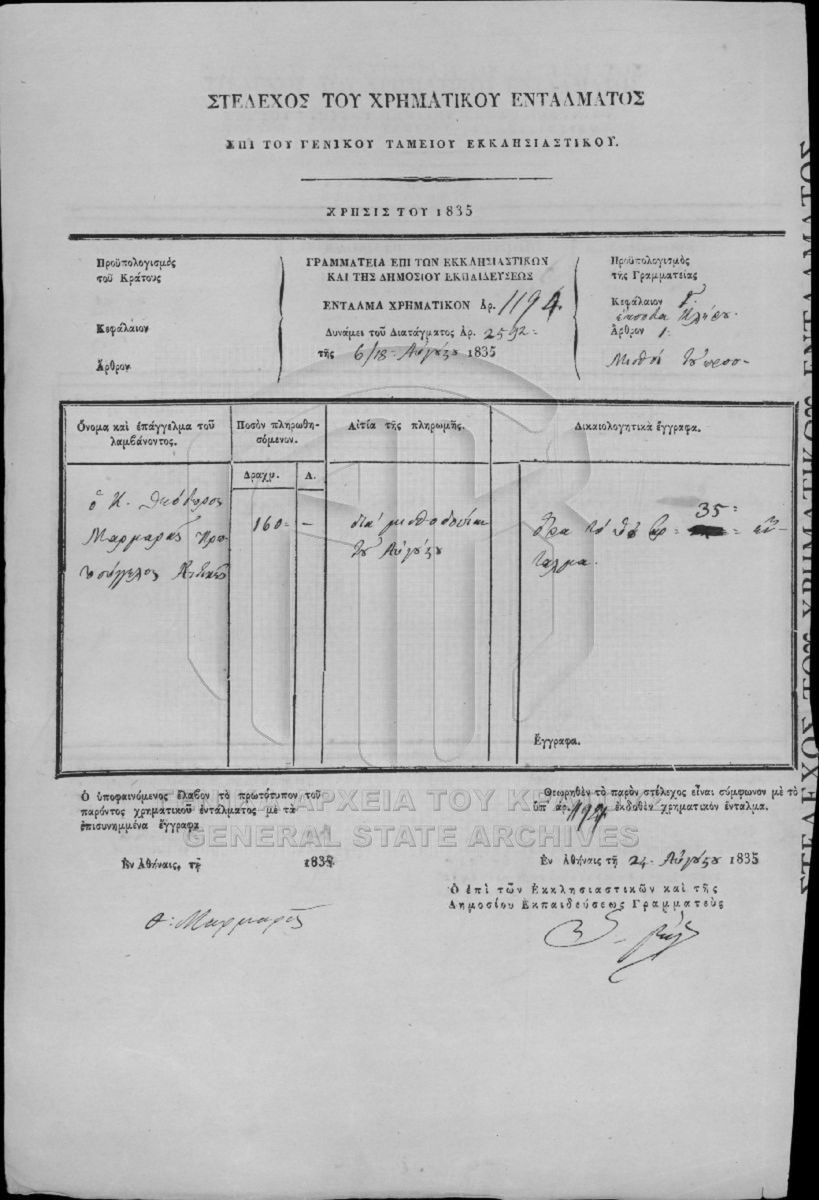 ΣΤΕΛΕΧΟΣ ΤΟΥ ΧΡΗΜΑΤΙΚΟΥ ΕΝΤΑΛΜΑΤΟΣ
ΕΠΙ ΤΟΥ ΓΕΝΙΚΟΥ ΤΑΜΕΙΟΥ ΕΚΚΛΗΣΙΑΣΤΙΚΟΥ.
ΧΡΗΣΙΣ ΤΟΥ 1835
Προϋπολογισμὸς
τοῦ Κράτους
Κεφάλαιον
Ἄρθρον
ΓΡΑΜΜΑΤΕΙΑ ΕΠΙ ΤΩΝ ΕΚΚΛΗΣΙΑΣΤΙΚΩΝ
ΚΑΙ ΤΗΣ ΔΗΜΟΣΙΟΥ ΕΚΠΑΙΔΕΥΣΕΩΣ
ΕΝΤΑΛΜΑ ΧΡΗΜΑΤΙΚΟΝ Ἀρ. 1194.
Δυνάμει τοῦ Διατάγματος Ἀρ. 2592
τῆς 6/18 Αὐγούστου 1835
Προϋπολογισμὸς
τῆς Γραμματείας
Κεφάλαιον Γ.
Κλήρου.
Ἄρθρον 1.
Μισθοὶ
Ὄνομα καὶ ἐπάγγελμα τοῦ
λαμβάνοντος.
Ποσὸν πληρωθη-
σόμενον.
Αἰτία τῆς πληρωμῆς.
Δικαιολογητικὰ ἔγγραφα.
Δραχμ. Λ.
ὁ Κ. Θεόδωρος
Μαρμαρᾶς
160 -
διὰ μισθοδοσίαν
τοῦ Αὐγούστου
ὅρα τὸ ὑπ' ἀρ 35 ἔν-
ταλμα.
Ἔγγραφα.
Ο ὑποφαινόμενος ἔλαβον τὸ πρωτότυπον τοῦ
παρόντος χρηματικοῦ ἐντάλματος μὲ τὰ
ἐπισυνημμένα ἔγγραφα
Ἐν Ἀθήναις, τῇ 183
Θεωρηθὲν τὸ παρὸν στέλεχος εἶναι σύμφωνον μὲ τὸ
ὑπ' ἀρ. 1194 ἐκδοθὲν χρηματικὸν ἔνταλμα.
Ἐν Ἀθήναις τῇ 24 Αὐγούστου 1835
Ὁ ἐπὶ τῶν Ἐκκλησιαστικῶν καὶ τῆς
Δημοσίου Εκπαιδεύσεως Γραμματεὺς
Θ. Μαρμαρᾶς
ΣΤΕΛΕΧΟΣ ΤΟΥ ΧΡΗΜΑΤΙΚΟΥ ΕΝΤΑΛΜΑΤΟΣ
ΓΕΝΙΚΑ ΑΡΧΕΙΑ ΤΟΥ ΚΡΑΤΟΥΣ
GENERAL STATE ARCHIVES